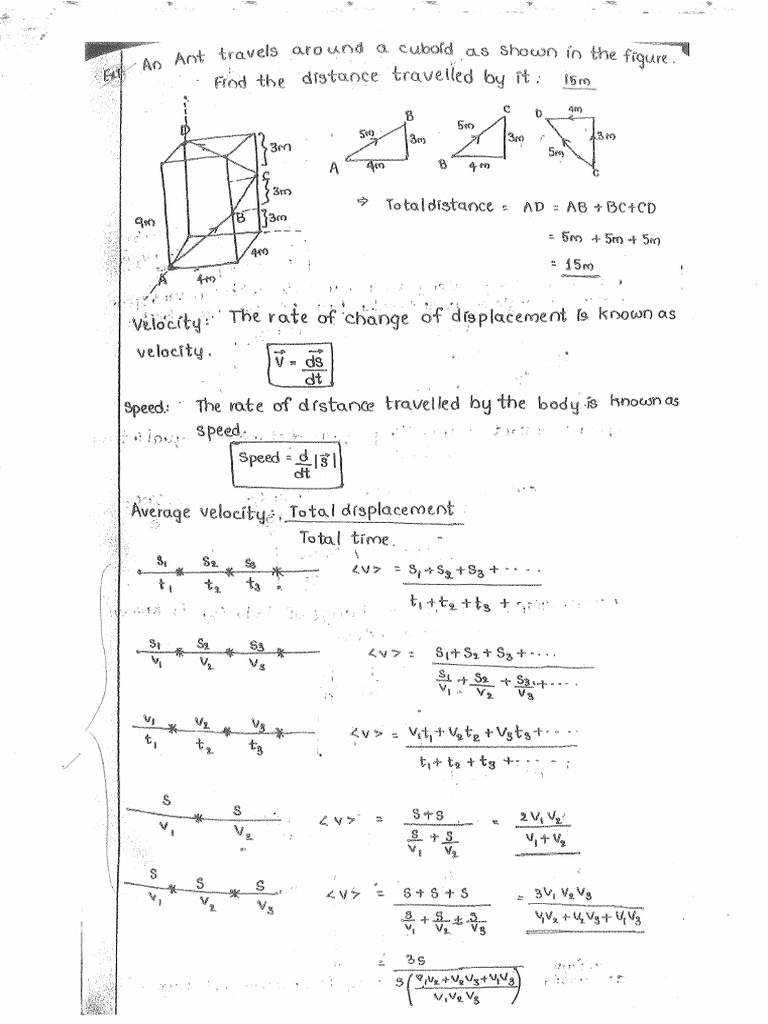 Ex:
An Ant travels around a cuboid as shown in the figure.
Find the distance travelled by it: 15m
D
3m
C
3m
B
3m
9m
4m
A
4m
5m
B
3m
A
4m
5m
C
3m
B
4m
D
4m
3m
5m
C
⇒ Total distance = AD = AB + BC + CD
= 5m + 5m + 5m
= 15m
Velocity: The rate of change of displacement is known as
velocity.
v⃗ = ds⃗/dt
Speed: The rate of distance travelled by the body is known as
speed.
Speed = d/dt |s⃗|
Average velocity: Total displacement
Total time.
S₁ S₂ S₃ <v> = S₁+S₂+S₃+····
t₁ t₂ t₃ t₁+t₂+t₃+
S₁ S₂ S₃ <v> = S₁+S₂+S₃+····
V₁ V₂ V₃ S₁/V₁ + S₂/V₂ + S₃/V₃ +····
V₁ V₂ V₃ <v> = V₁t₁+V₂t₂+V₃t₃+····
t₁ t₂ t₃ t₁+t₂+t₃+····
S S <v> = S+S = 2V₁V₂
V₁ V₂ S/V₁ + S/V₂ V₁+V₂
S S S <v> = S+S+S = 3V₁V₂V₃
V₁ V₂ V₃ S/V₁ + S/V₂ + S/V₃ V₁V₂+V₂V₃+V₁V₃
= 3S
S(V₁V₂+V₂V₃+V₁V₃ / V₁V₂V₃)